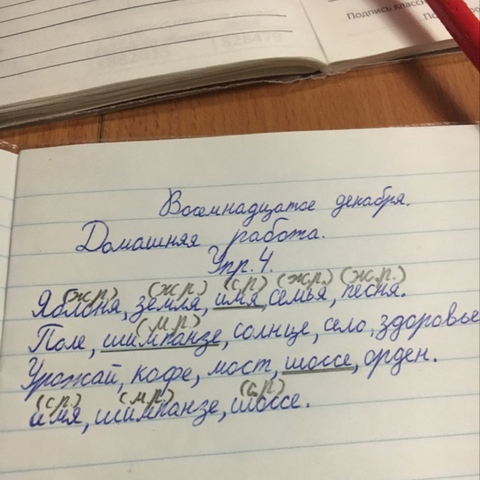 Подпись класс
Восемнадцатое декабря.
Домашняя работа.
Упр. 4.
(ж.р) (ж.р.) (с.р) (ж.р.) (ж.р.)
Яблоня, земля, имя, семья, песня.
(м.р.)
Поле, шимпанзе, солнце, село, здоровье
Урожай, кофе, мост, шоссе, орден.
(с.р.) (м.р.) (с.р)
имя, шимпанзе, шоссе.